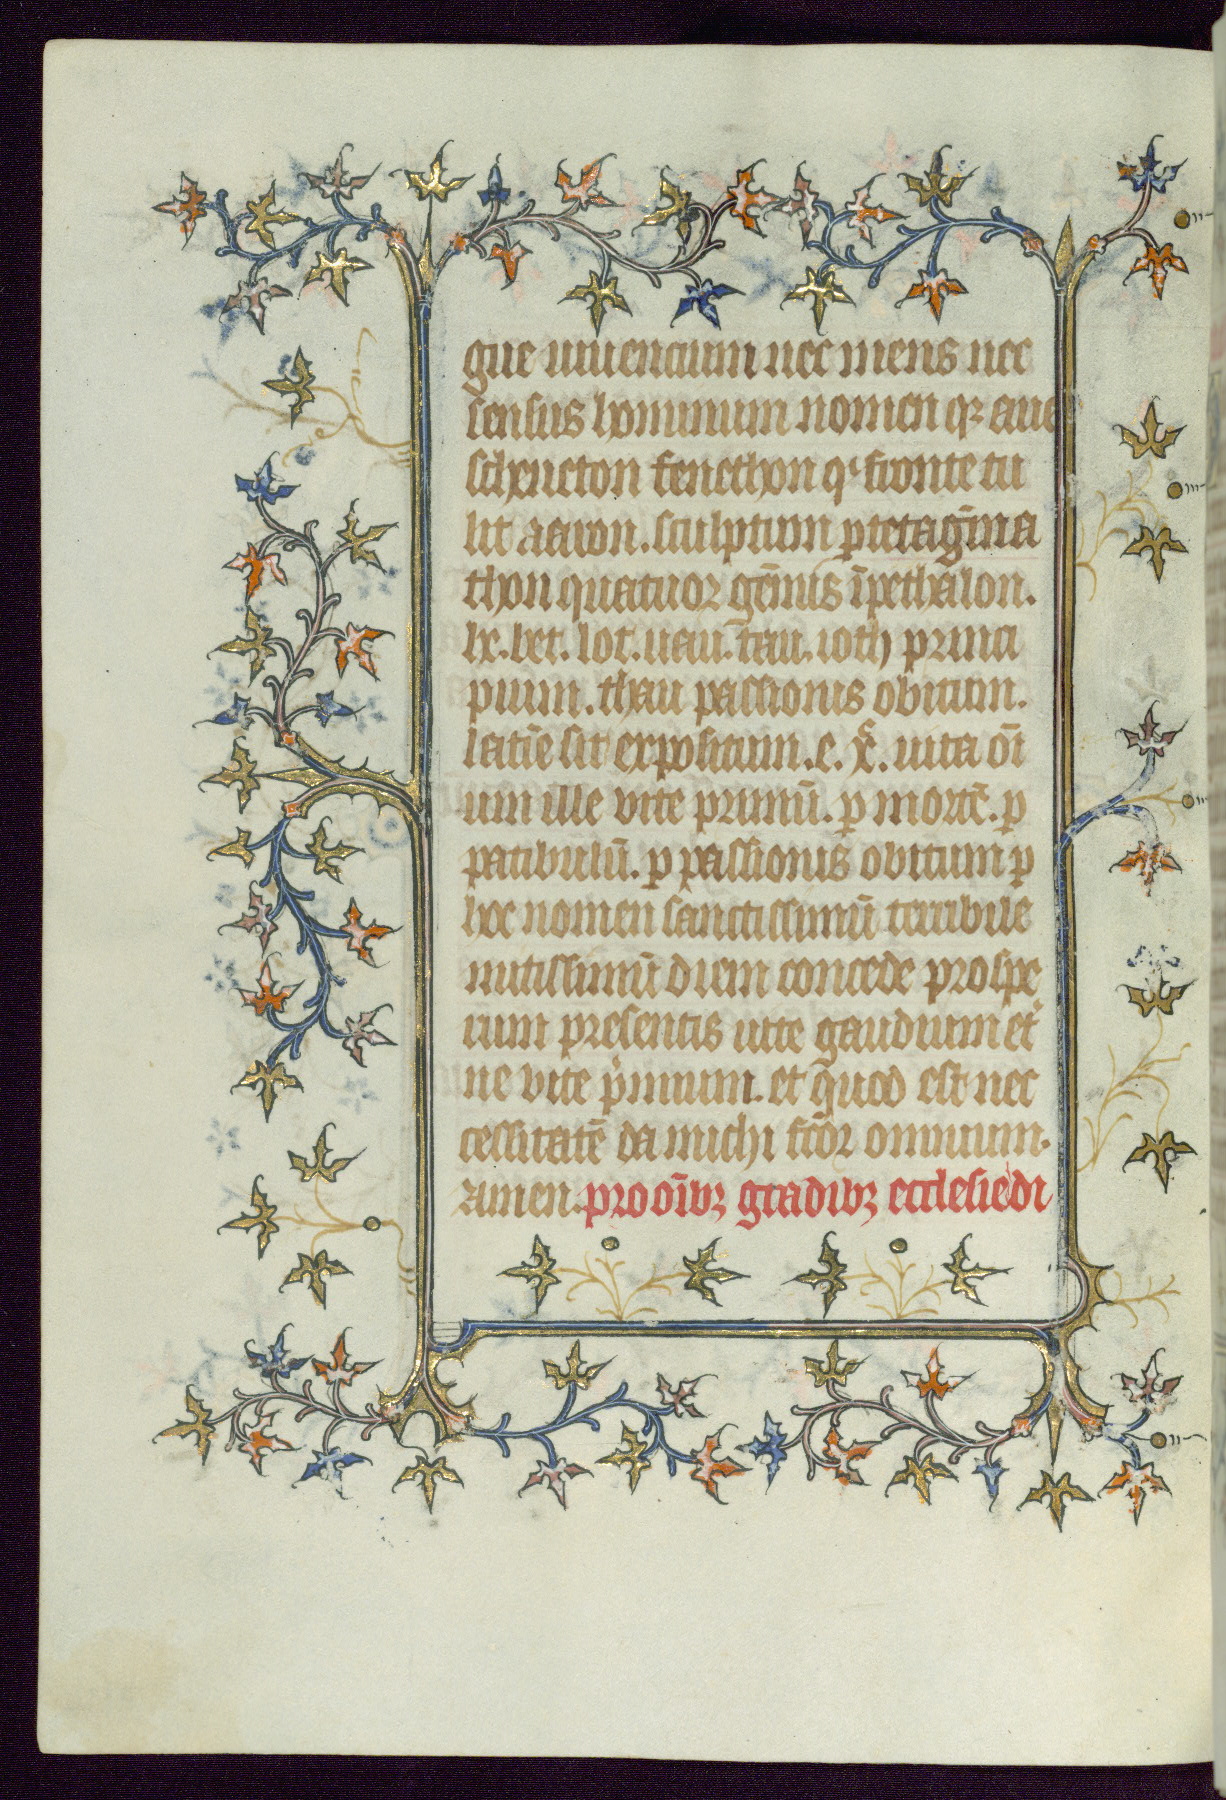 gue uiuencium nec mens nec
sensus hominum nomen qꝫ aue
schructon fenethon qͥ fronte tu
lit aaron. sculptum ꝑtetagͫma
thon quatuor gēmis īpethalon.
hx. het. lot. uau. tau. ioth princi
pium. thau passionis obitum.
latīe sit expositum. e. xͨ. uita oī
um ille vite primū. ꝑ mortē. ꝑ
patibulū. ꝑ passionis obitum ꝑ
hoc nomen sanctissimū terribile
mitissimū diem concede prospe
rum presentis uite gaudium et
ne vite pͥmium. et quod est nec
cessitatē da michi fcōr omnium.
amen. pro oībꝫ gradibꝫ ecclesie di